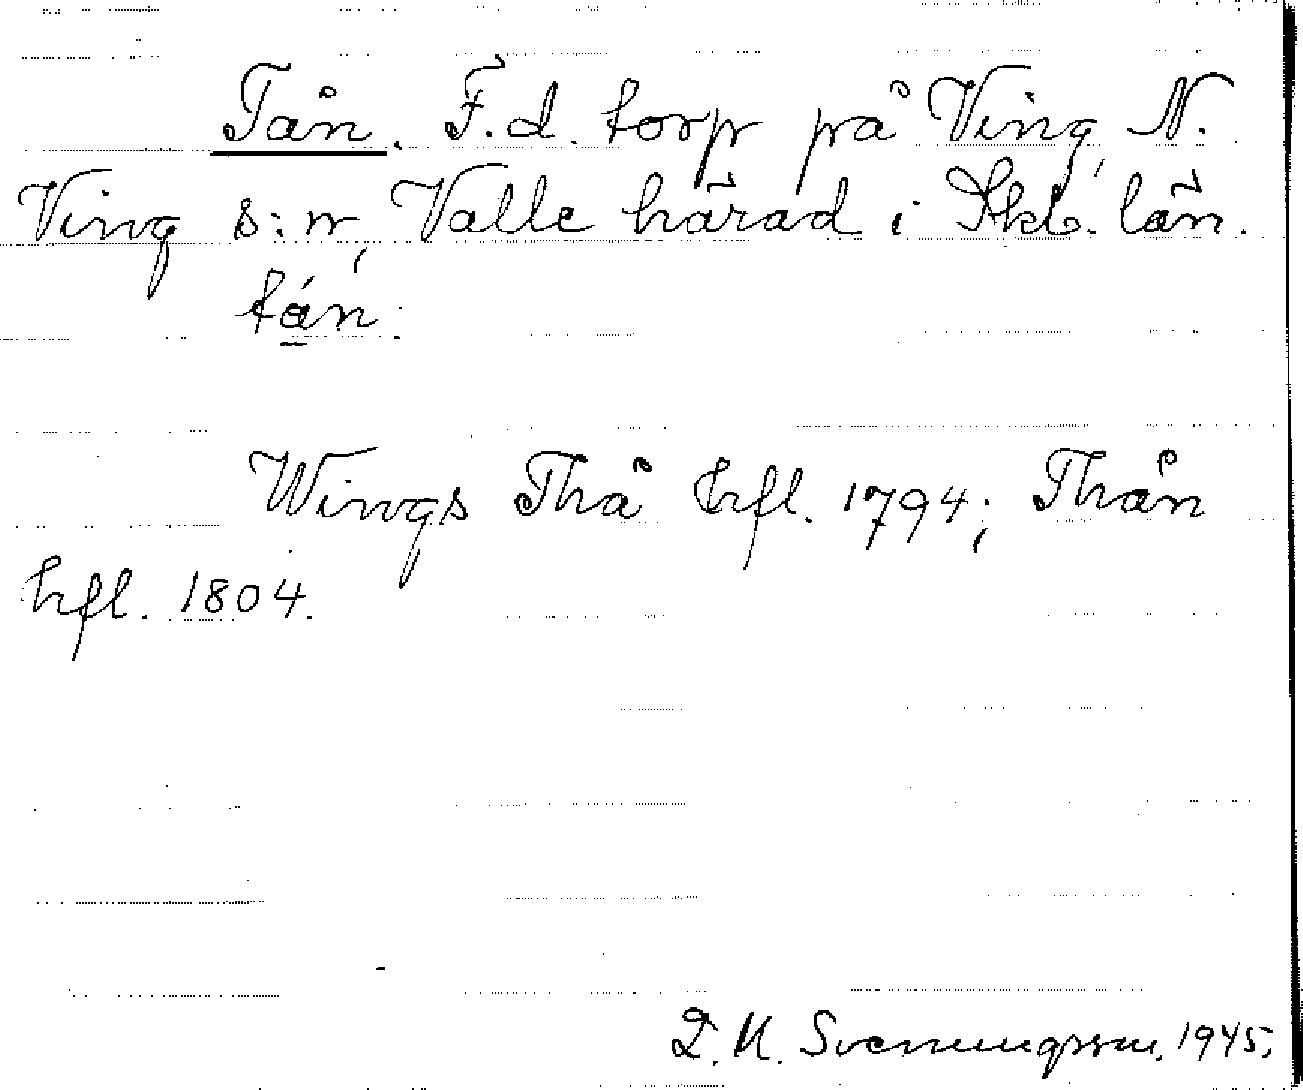 Tån. F.d. torp på Ving N.
Ving s:n, Valle härad i Skb. län.
tán.
Wings Thå hfl. 1794; Thån
hfl. 1804.
Svenningsson, 1945.